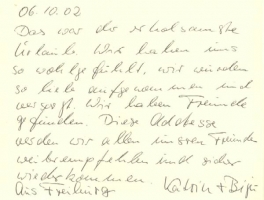 06.10.02
Das war der erholsamste
Urlaub. Wir haben uns
so wohlgefühlt, wir wurden
so lieb aufgenommen und
versorgt. Wir haben Freunde
gefunden. Diese Adresse
werden wir allen unsren Freunden
weiterempfehlen und sicher
wiederkommen.
Aus Freiburg Katrin + Birgit